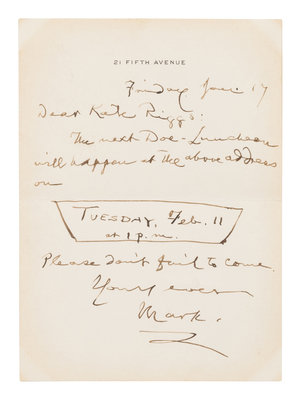 21 FIFTH AVENUE
Friday Jan 17
Dear Kate Riggs:
The next Doe-Luncheon
will happen at the above address
on
TUESDAY, Feb. 11
at 1 p.m.
Please don't fail to come.
Yours ever
Mark.